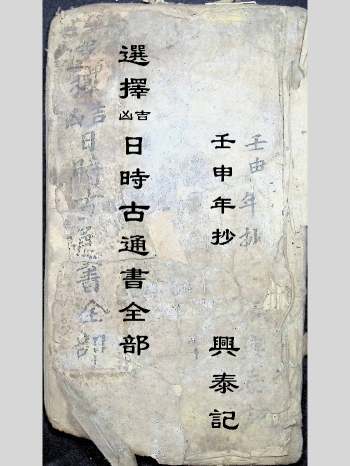 壬申年抄 興泰記
選擇吉凶日時古通書全部
壬申年抄
選擇吉凶日時古通書全部